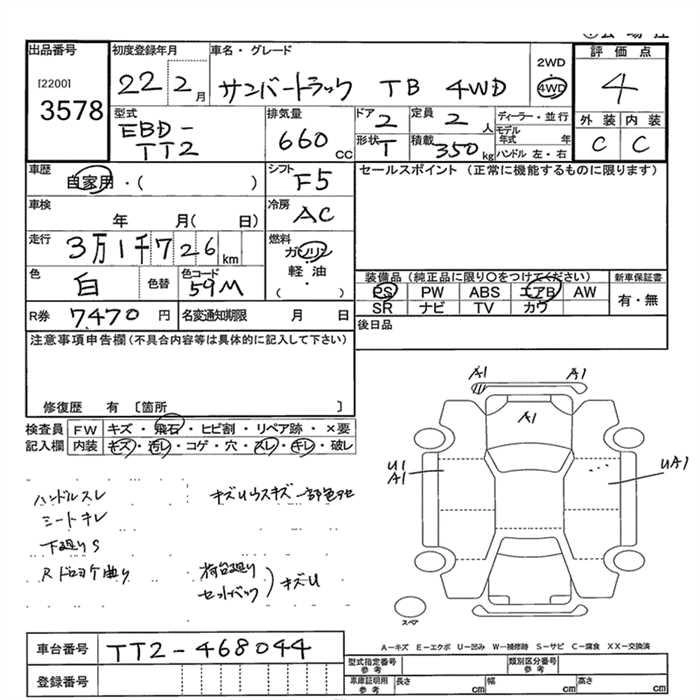 出品番号
[2200]
3578
初度登録年月
22 2月
車名・グレード
サンバートラック TB 4WD
2WD
・
4WD
評価点
4
外装 内装
C C
型式
EBD-
TT2
排気量
660 cc
ドア
2
定員
2 人
形状
T
積載
350 kg
ディーラー・並行
モデル年式 年
ハンドル 左・右
車歴
自家用・( )
シフト
F5
セールスポイント (正常に機能するものに限ります)
車検
年 月( 日)
冷房
AC
走行
3万1千726km
燃料
ガソリン
軽油
( )
色
白
色替
色コード
59M
装備品 (純正品に限り○をつけてください)
新車保証書
PS PW ABS エアB AW
有・無
SR ナビ TV カワ
R券 7470円
名変通知期限 月 日
後日品
注意事項申告欄 (不具合内容等は具体的に記入して下さい)
修復歴 有 〔箇所 〕
検査員 FW キズ・飛石・ヒビ割・リペア跡・×要
記入欄 内装 キズ・汚レ・コゲ・穴・スレ・キレ・破レ
ハンドルスレ
シートキレ
下廻りS
Rドロヨケ曲り
キズUウスキズ一部色ボセ
荷台廻り
セットバック
キズU
A1 A1
A1
U1
A1
UA1
スペア
A-キズ E-エクボ U-凹み W-補修跡 S-サビ C-腐食 XX-交換済
車台番号 TT2-468044
登録番号
型式指定番号
参考
類別区分番号
参考
車庫証明用
参考
長さ cm 幅 cm 高さ cm